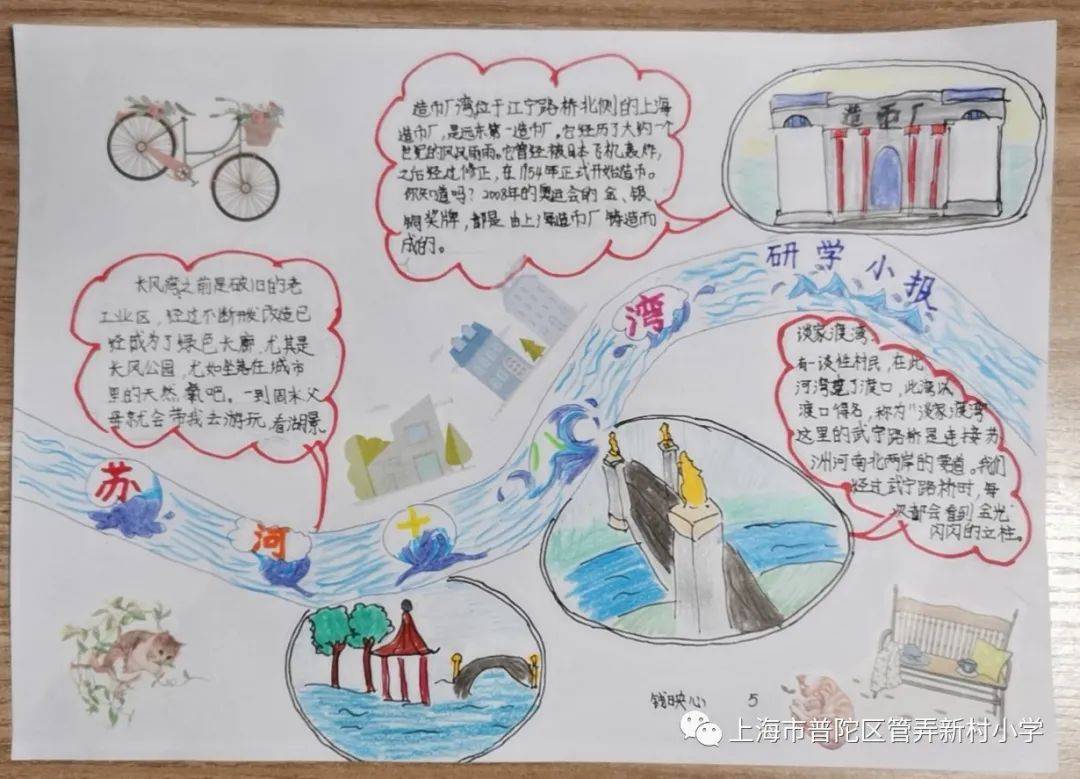 造币厂湾位于江宁路桥北侧的上海
造币厂,是远东第一造币厂。它经历了大约一个
世纪的风风雨雨。它曾经被日本飞机轰炸,
之后经过修正,在1954年正式开始造币。
你知道吗?2008年的奥运会的金、银、
铜奖牌,都是由上海造币厂铸造而
成的。
造币厂
研学小报
长风湾之前是破旧的老
工业区,经过不断开发改造已
经成为了绿色长廊.尤其是
长风公园,尤如坐落在城市
里的天然氧吧。一到周末父
母就会带我去游玩,看湖景
苏河十八湾
谈家渡湾
有一谈姓村民,在此
河湾建了渡口,此湾以
渡口得名,称为"谈家渡湾"
这里的武宁路桥是连接苏
洲河南北两岸的要道。我们
经过武宁路桥时,每
次都会看到金光
闪闪的立柱。
钱映心 5
上海市普陀区管弄新村小学